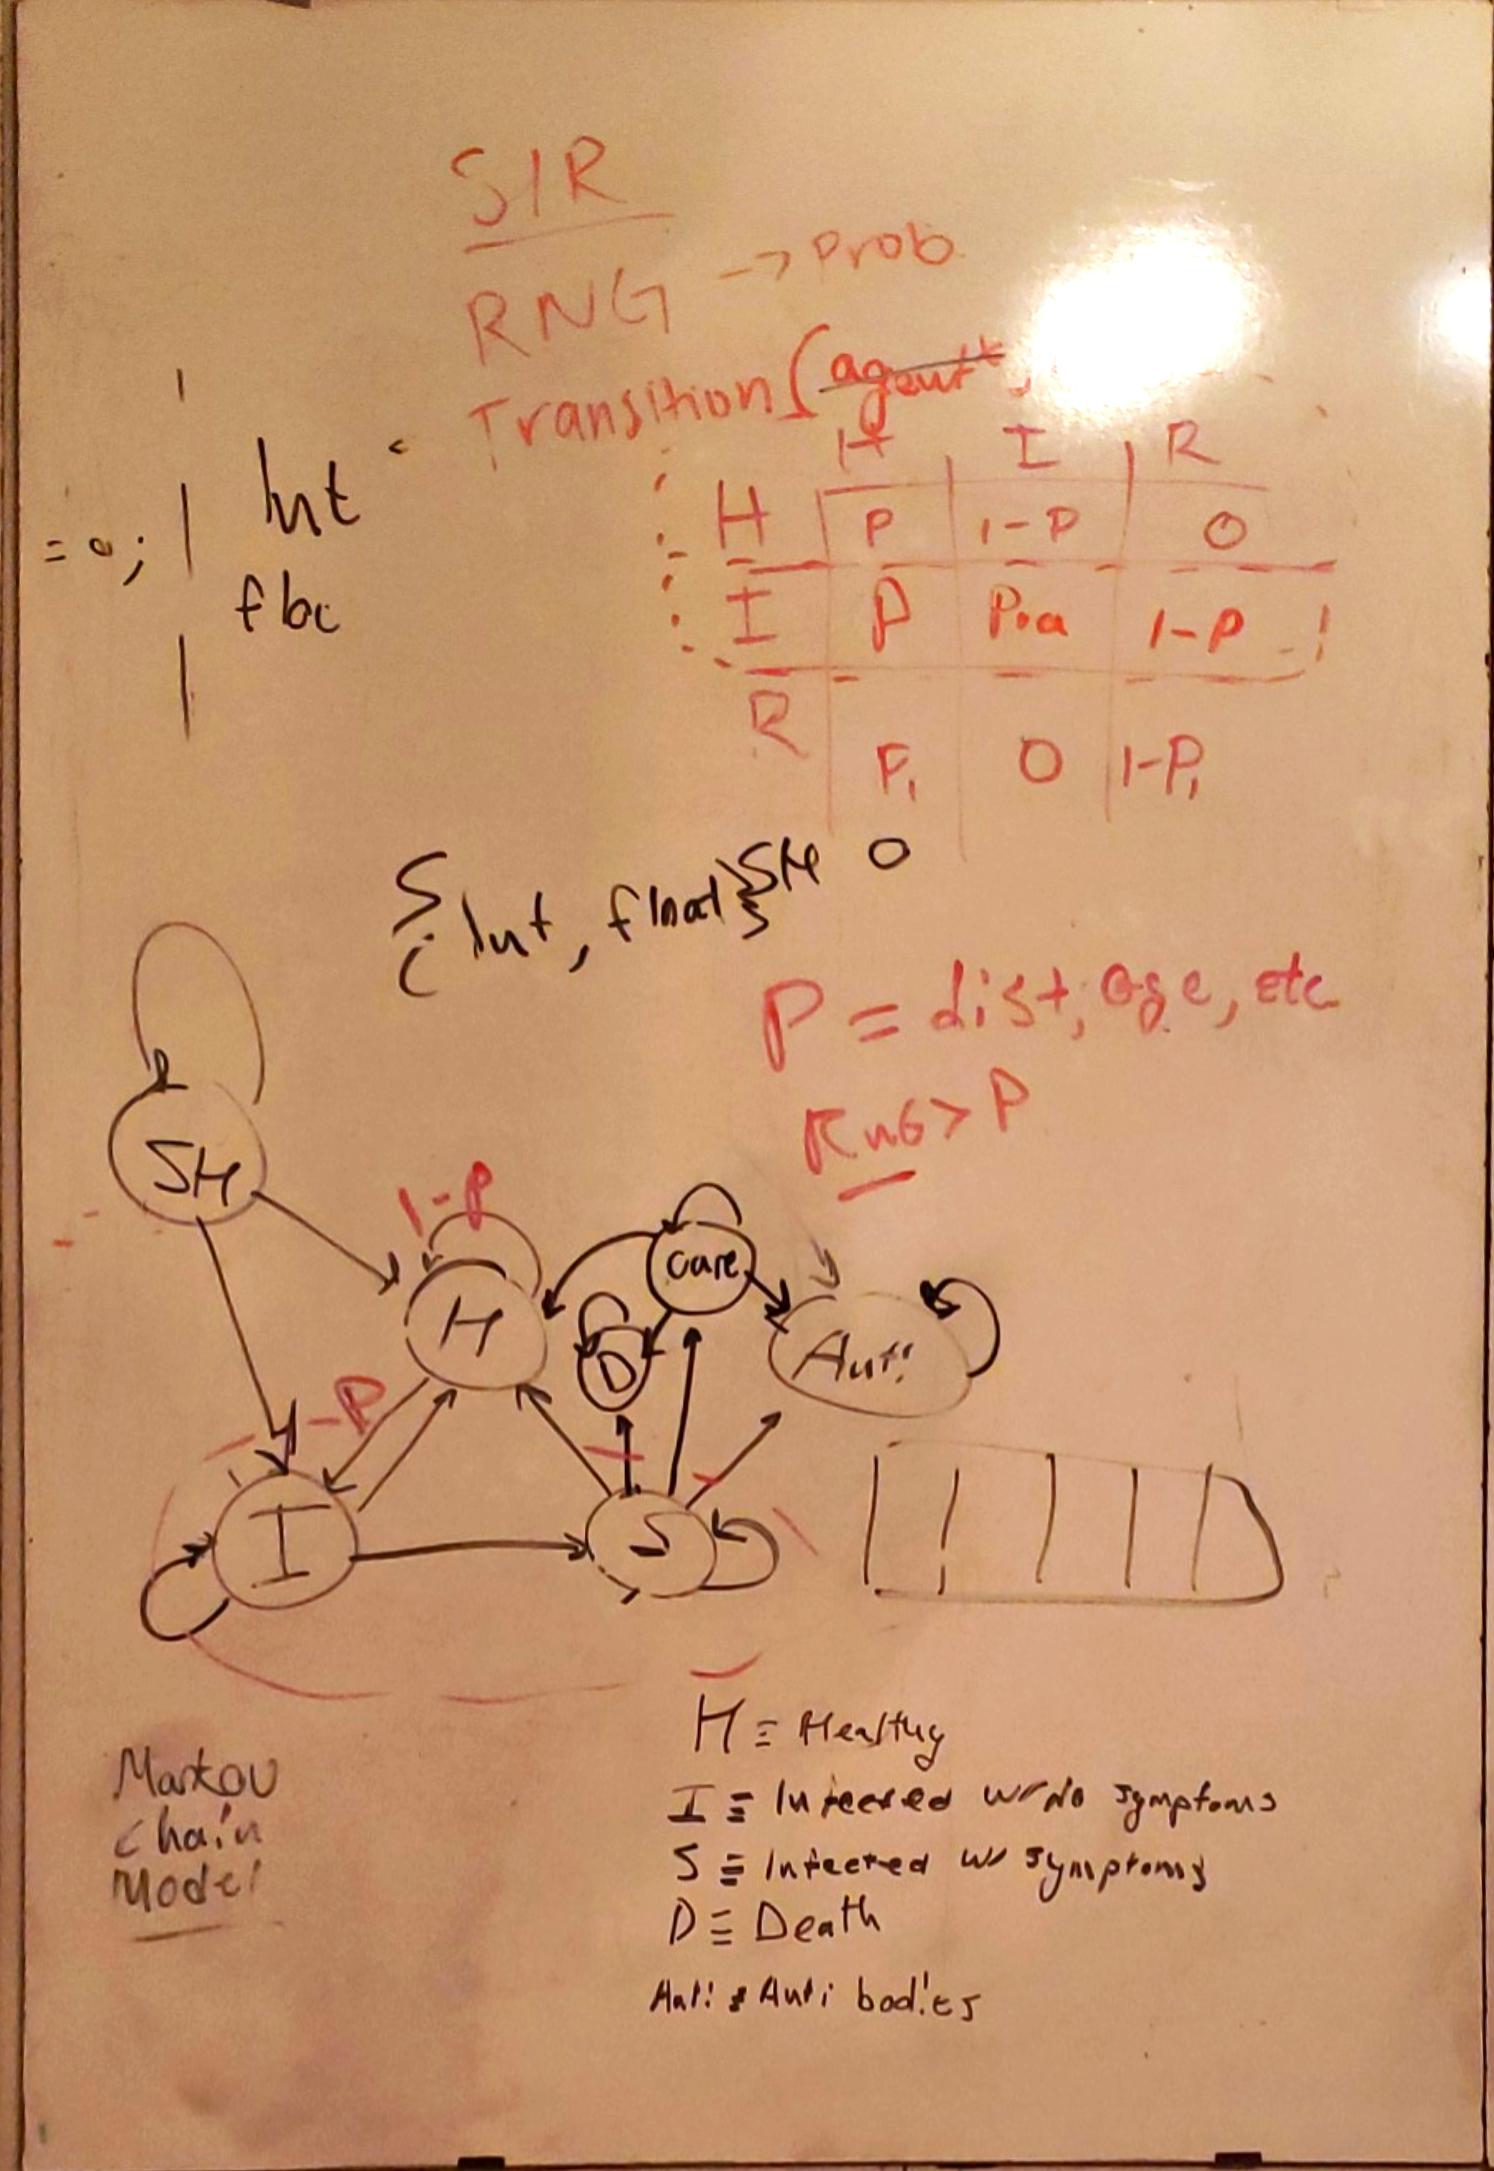 SIR
RNG -> prob
Transition (agent*,
H I R
H P 1-P 0
I P 1-P
R P₁ 0 1-P₁
= 0; Int
{Int, float} SH 0
P = dist, age, etc
RnG > P
SH
1-P
H
Care
D
Anti
-P
I
S
Markov
Chain
Model
H ≡ Healthy
I ≡ Infected w/ No symptoms
S ≡ Infected w/ symptoms
D ≡ Death
Anti ≡ Anti bodies